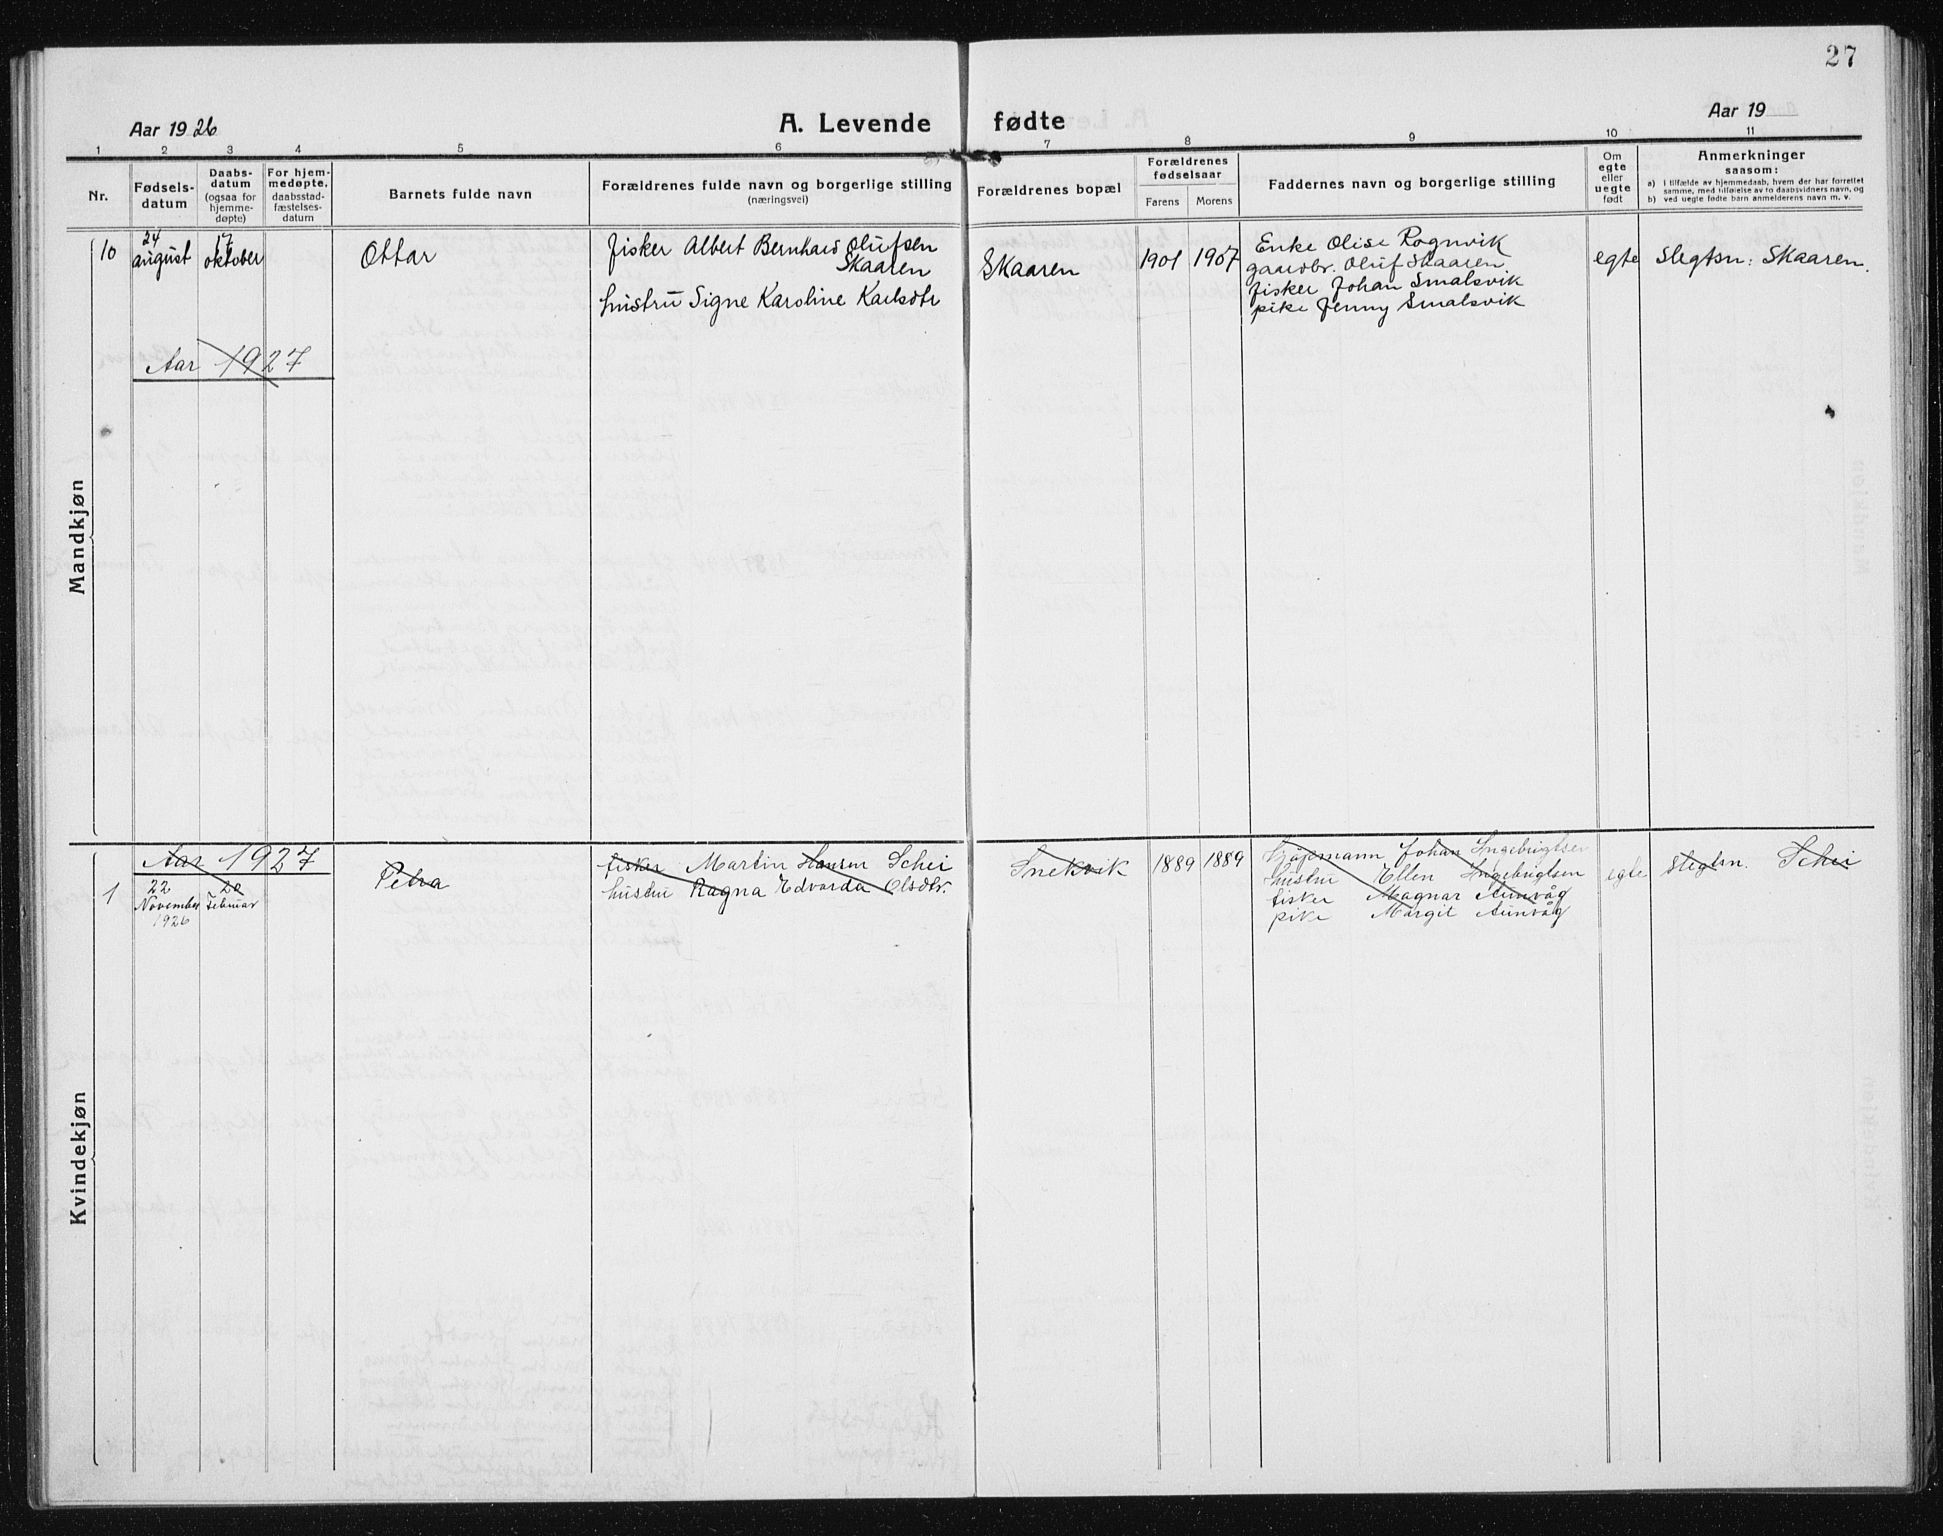 27
Aar 1926
A. Levende fødte
Aar 19
1 2 3 4 5 6 7 8 9 10 11
Nr.
Fødsels-
datum
Daabs-
datum
(ogsaa for
hjemme-
døpte)
For hjem-
medøpte,
daabsstad-
fæstelses-
datum
Barnets fulde navn
Forældrenes fulde navn og borgerlige stilling
(næringsvei)
Forældrenes bopæl
Forældrenes
fødselsaar
Farens Morens
Faddernes navn og borgerlige stilling
Om
egte
eller
uegte
født
Anmerkninger
saasom:
a) i tilfælde av hjemmedaab, hvem der har forrettet
samme, med tilføielse av to daabsvidners navn, og
b) ved uegte fødte barn anmelderens navn m. v.
Mandkjøn
10
24
august
17
oktober
Ottar
fisker Albert Bernhard Olufsen
Skaaren
hustru Signe Karoline Karlsdtr
Skaaren
1901 1907
Enke Olise Rognvik
gaardbr. Oluf Skaaren
fisker Johan Smalsvik
pike Jenny Smalsvik
egte
Slegtsn: Skaaren.
Aar 1927
Kvindekjøn
Aar 1927
1
22
November
1926
20
Februar
Petra
fisker Martin Hansen Schei
hustru Ragna Edvarda Olsdtr.
Snekvik
1889 1889
Johan Ingebrigtsen
hustru Ellen Ingebrigtsen
fisker Magnar Aunvåg
pike Margit Aunvåg
egte
slegtsn. Schei